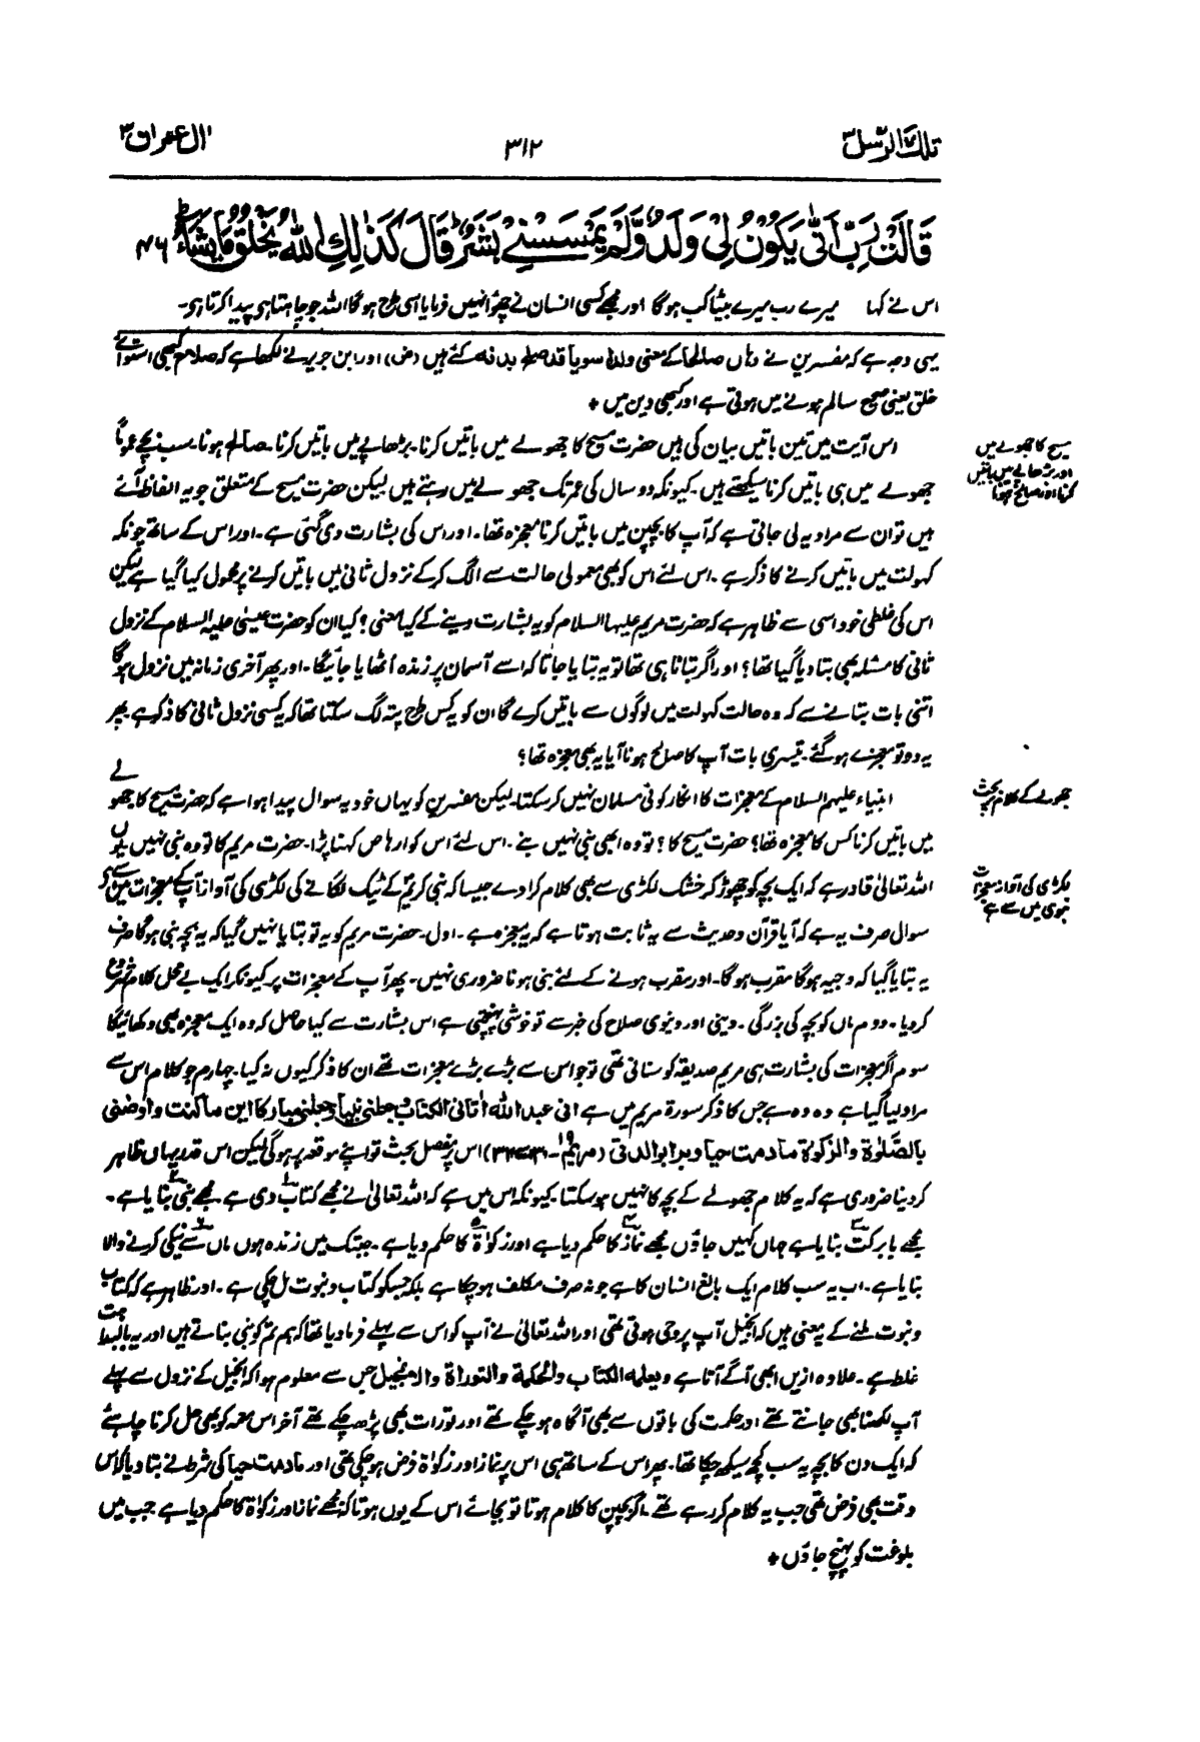 تلك الرسل ۳
۳۱۲
ال عمران ۳
قَالَتْ رَبِّ اَنّٰى يَكُوْنُ لِيْ وَلَدٌ وَّلَمْ يَمْسَسْنِيْ بَشَرٌ ؕ قَالَ كَذٰلِكِ اللّٰهُ يَخْلُقُ مَا يَشَآءُ ؕ ۴۶
اس نے کہا میرے رب میرے بیٹا کب ہوگا اور مجھے کسی انسان نے چھؤا نہیں فرمایا اسی طرح ہوگا اللہ جو چاہتا ہی پیدا کرتا ہی۔
یہی وجہ ہے کہ مفسرین نے وہاں صالحًا کے معنی ولدًا سویا قد صلح بدنه کئے ہیں (ض) اور ابن جریر نے لکھا ہے کہ صلاح کبھی استوائے
خلق یعنی صحیح سالم ہونے میں ہوتی ہے اور کبھی دین میں +
مسیح کا جھولے میں
اور بڑھاپے میں باتیں
کرنا اور صالح ہونا
اس آیت میں تین باتیں بیان کی ہیں حضرت مسیح کا جھولے میں باتیں کرنا۔ بڑھاپے میں باتیں کرنا۔ صالح ہونا۔ سب بچے عموماً
جھولے میں ہی باتیں کرنا سیکھتے ہیں۔ کیونکہ دو سال کی عمر تک جھولے میں رہتے ہیں لیکن حضرت مسیح کے متعلق جو یہ الفاظ آئے
ہیں تو ان سے مراد یہ لی جاتی ہے کہ آپ کا بچپن میں باتیں کرنا معجزہ تھا۔ اور اس کی بشارت دی گئی ہے۔ اور اس کے ساتھ چونکہ
کہولت میں باتیں کرنے کا ذکر ہے۔ اس لئے اس کو بھی معمولی حالت سے الگ کر کے نزول ثانی میں باتیں کرنے پر محمول کیا گیا ہے لیکن
اس کی غلطی خود اسی سے ظاہر ہے کہ حضرت مریم علیہا السلام کو یہ بشارت دینے کے کیا معنی؟ کیا ان کو حضرت عیسیٰ علیہ السلام کے نزول
ثانی کا مسئلہ بھی بتا دیا گیا تھا؟ اور اگر بتانا ہی تھا تو یہ بتایا جاتا کہ اسے آسمان پر زندہ اٹھایا جائیگا۔ اور پھر آخری زمانہ میں نزول ہوگا
اتنی بات بتانے سے کہ وہ حالت کہولت میں لوگوں سے باتیں کرے گا ان کو کس طرح پتہ لگ سکتا تھا کہ یہ کسی نزول ثانی کا ذکر ہے۔ پھر
یہ دو تو معجزے ہو گئے۔ تیسری بات آپ کا صالح ہونا آیا یہ بھی معجزہ تھا؟
جھولے کے کلام پر بحث
انبیاء علیہم السلام کے معجزات کا انکار کوئی مسلمان نہیں کر سکتا۔ لیکن مفسرین کو یہاں خود یہ سوال پیدا ہوا ہے کہ حضرت مسیح کا جھولے
میں باتیں کرنا کس کا معجزہ تھا؟ حضرت مسیح کا؟ تو وہ ابھی نبی نہیں بنے۔ اس لئے اس کو ارہاص کہنا پڑا۔ حضرت مریم کا تو وہ نبی نہیں یوں
لکڑی کی آواز معجزات
نبوی میں سے ہے
اللہ تعالیٰ قادر ہے کہ ایک بچہ کو چھوڑ کر خشک لکڑی سے بھی کلام کرا دے جیسا کہ نبی کریم کے ٹیک لگانے کی لکڑی کی آواز آپ کے معجزات میں سے
سوال صرف یہ ہے کہ آیا قرآن و حدیث سے یہ ثابت ہوتا ہے کہ یہ معجزہ ہے۔ اول۔ حضرت مریم کو یہ تو بتایا نہیں گیا کہ یہ بچہ نبی ہوگا صرف
یہ بتایا گیا کہ وجیہ ہوگا مقرب ہوگا۔ اور مقرب ہونے کے لئے نبی ہونا ضروری نہیں۔ پھر آپ کے معجزات پر کیونکر ایک بے محل کلام شروع
کر دیا۔ دوم ماں کو بچہ کی بزرگی۔ دینی اور دنیوی صلاح کی خبر سے تو خوشی پہنچتی ہے اس بشارت سے کیا حاصل کہ وہ ایک معجزہ بھی دکھائیگا
سوم اگر معجزات کی بشارت ہی مریم صدیقہ کو سنانی تھی تو جو اس سے بڑے بڑے معجزات تھے ان کا ذکر کیوں نہ کیا۔ چہارم جو کلام اس سے
مراد لیا گیا ہے وہ وہ ہے جس کا ذکر سورة مریم میں ہے انی عبد اللہ اٰتانی الکتاب وجعلنی نبیا وجعلنی مبارکا این ما کنت واوصٰنی
بالصلٰوة والزکوٰة مادمت حیا وبرا بوالدتی (مریم ۱۹۔ ۳۰ تا ۳۲) اس پر مفصل بحث تو اپنے موقعہ پر ہوگی لیکن اس قدر یہاں ظاہر
کر دینا ضروری ہے کہ یہ کلام جھولے کے بچہ کا نہیں ہو سکتا۔ کیونکہ اس میں ہے کہ اللہ تعالیٰ نے مجھے کتاب دی ہے۔ مجھے نبی بنایا ہے۔
مجھے بابرکت بنایا ہے جہاں کہیں جاؤں مجھے نماز کا حکم دیا ہے اور زکوٰة کا حکم دیا ہے۔ جبتک میں زندہ ہوں ماں سے نیکی کرنے والا
بنایا ہے۔ اب یہ سب کلام ایک بالغ انسان کا ہے جو نہ صرف مکلف ہو چکا ہے بلکہ جسکو کتاب و نبوت مل چکی ہے۔ اور ظاہر ہے کہ کتاب
و نبوت ملنے کے یہ معنی ہیں کہ انجیل آپ پر وحی ہوتی تھی اور اللہ تعالیٰ نے آپ کو اس سے پہلے فرما دیا تھا کہ ہم تم کو نبی بناتے ہیں اور یہ بالبداہت
غلط ہے۔ علاوہ ازیں ابھی آگے آتا ہے ویعلمہ الکتاب والحکمة والتوراة والانجیل جس سے معلوم ہوا کہ انجیل کے نزول سے پہلے
آپ لکھنا بھی جانتے تھے اور حکمت کی باتوں سے بھی آگاہ ہو چکے تھے اور تورات بھی پڑھ چکے تھے آخر اس معمہ کو بھی حل کرنا چاہئے
کہ ایک دن کا بچہ یہ سب کچھ سیکھ چکا تھا۔ پھر اس کے ساتھ ہی اس پر نماز اور زکوٰة فرض ہو چکی تھی اور مادمت حیا کی شرط نے بتا دیا کہ اس
وقت بھی فرض تھی جب یہ کلام کر رہے تھے۔ اگر بچپن کا کلام ہوتا تو بجائے اس کے یوں ہوتا کہ مجھے نماز اور زکوٰة کا حکم دیا ہے جب میں
بلوغت کو پہنچ جاؤں +